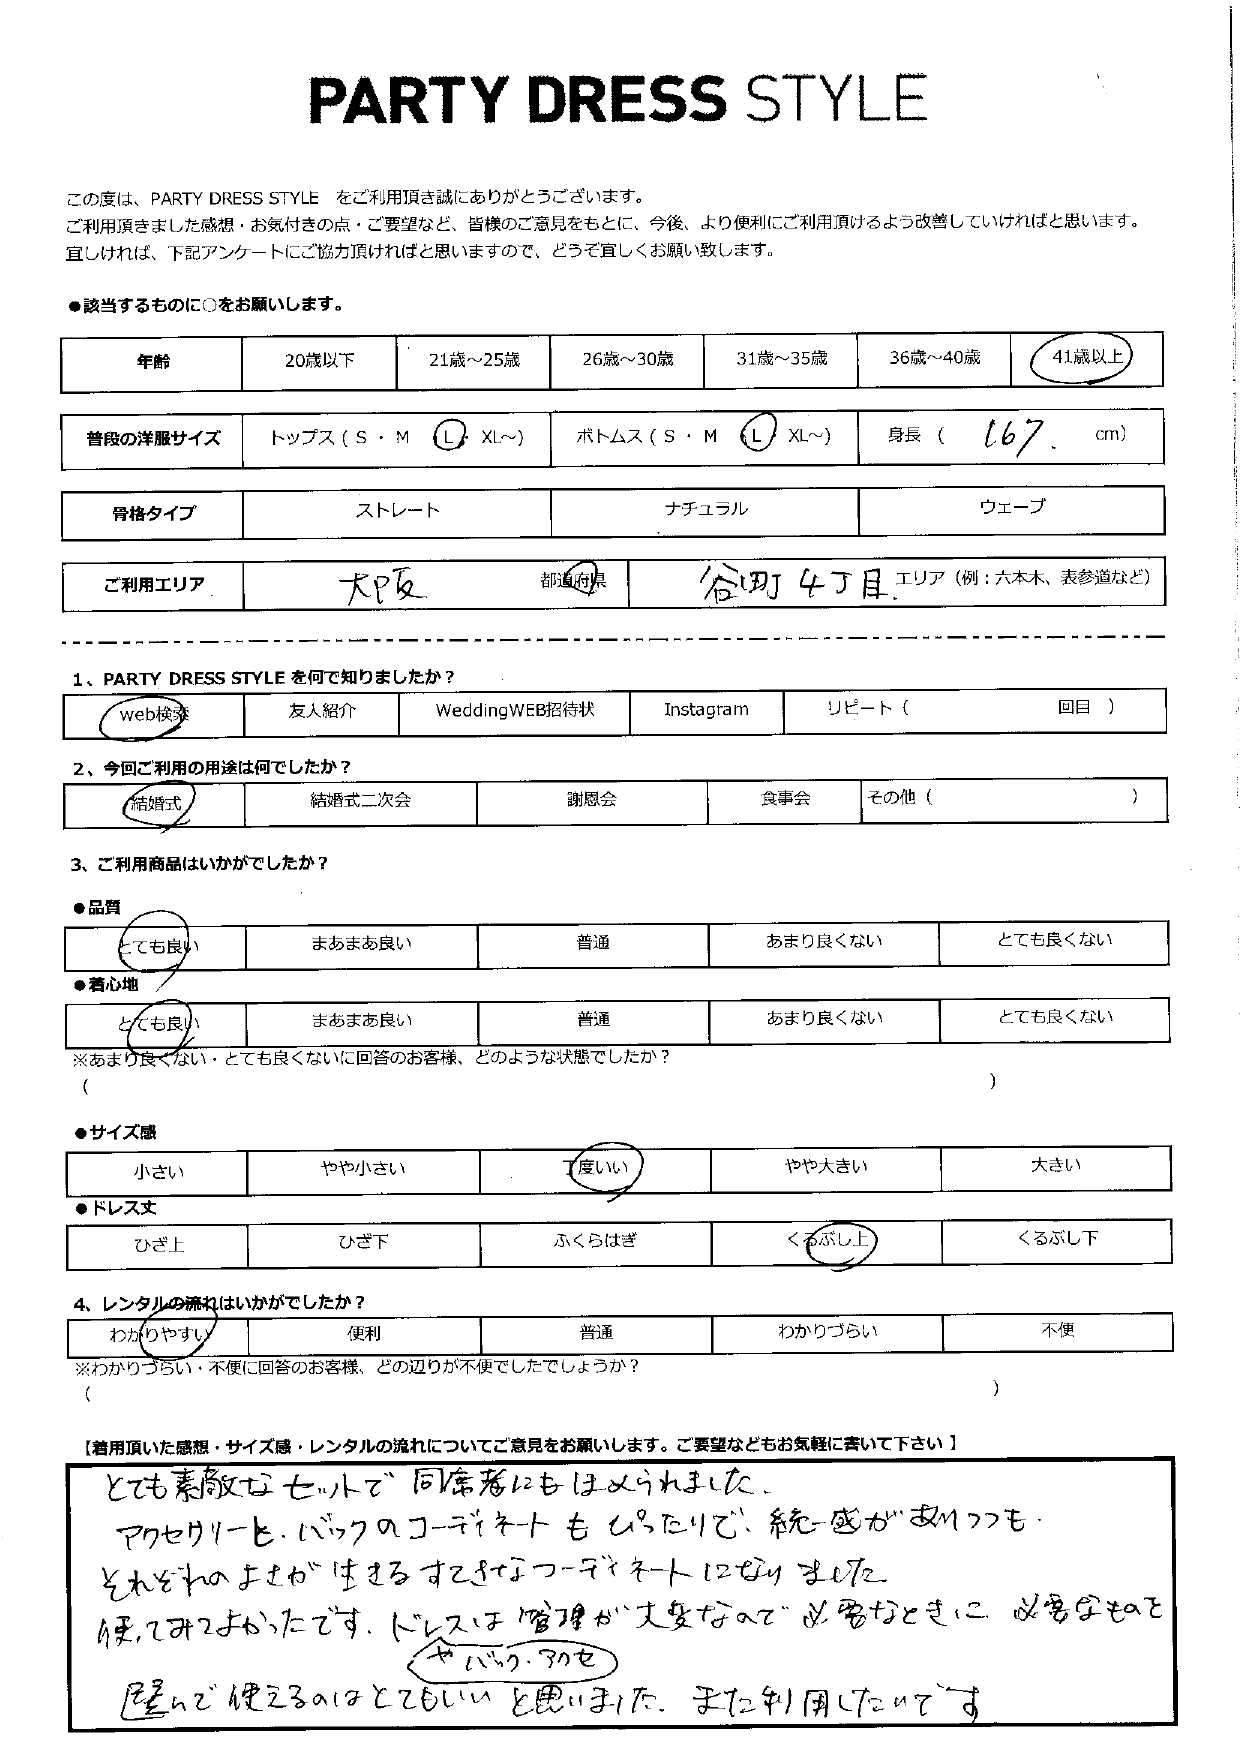 PARTY DRESS STYLE
この度は、PARTY DRESS STYLE をご利用頂き誠にありがとうございます。
ご利用頂きました感想・お気付きの点・ご要望など、皆様のご意見をもとに、今後、より便利にご利用頂けるよう改善していければと思います。
宜しければ、下記アンケートにご協力頂ければと思いますので、どうぞ宜しくお願い致します。
●該当するものに○をお願いします。
年齢 20歳以下 21歳～25歳 26歳～30歳 31歳～35歳 36歳～40歳 41歳以上
普段の洋服サイズ トップス ( S ・ M L ・ XL～) ボトムス ( S ・ M L XL～) 身長 ( 167. cm)
骨格タイプ ストレート ナチュラル ウェーブ
ご利用エリア 大阪 都道府県 谷町4丁目. エリア（例：六本木、表参道など）
1、PARTY DRESS STYLE を何で知りましたか？
web検索 友人紹介 WeddingWEB招待状 Instagram リピート ( 回目 )
2、今回ご利用の用途は何でしたか？
結婚式 結婚式二次会 謝恩会 食事会 その他 ( )
3、ご利用商品はいかがでしたか？
●品質
とても良い まあまあ良い 普通 あまり良くない とても良くない
●着心地
とても良い まあまあ良い 普通 あまり良くない とても良くない
※あまり良くない・とても良くないに回答のお客様、どのような状態でしたか？
( )
●サイズ感
小さい やや小さい 丁度いい やや大きい 大きい
●ドレス丈
ひざ上 ひざ下 ふくらはぎ くるぶし上 くるぶし下
4、レンタルの流れはいかがでしたか？
わかりやすい 便利 普通 わかりづらい 不便
※わかりづらい・不便に回答のお客様、どの辺りが不便でしたでしょうか？
( )
【着用頂いた感想・サイズ感・レンタルの流れについてご意見をお願いします。ご要望などもお気軽に書いて下さい】
とても素敵なセットで同席者にもほめられました.
アクセサリーと.バックのコーディネートもぴったりで、統一感がありつつも.
それぞれのよさが生きるすてきなコーディネートになりました
使ってみてよかったです. ドレスは管理が大変なので必要なときに 必要なものを
や バック・アクセ
選んで使えるのはとてもいいと思いました. また利用したいです